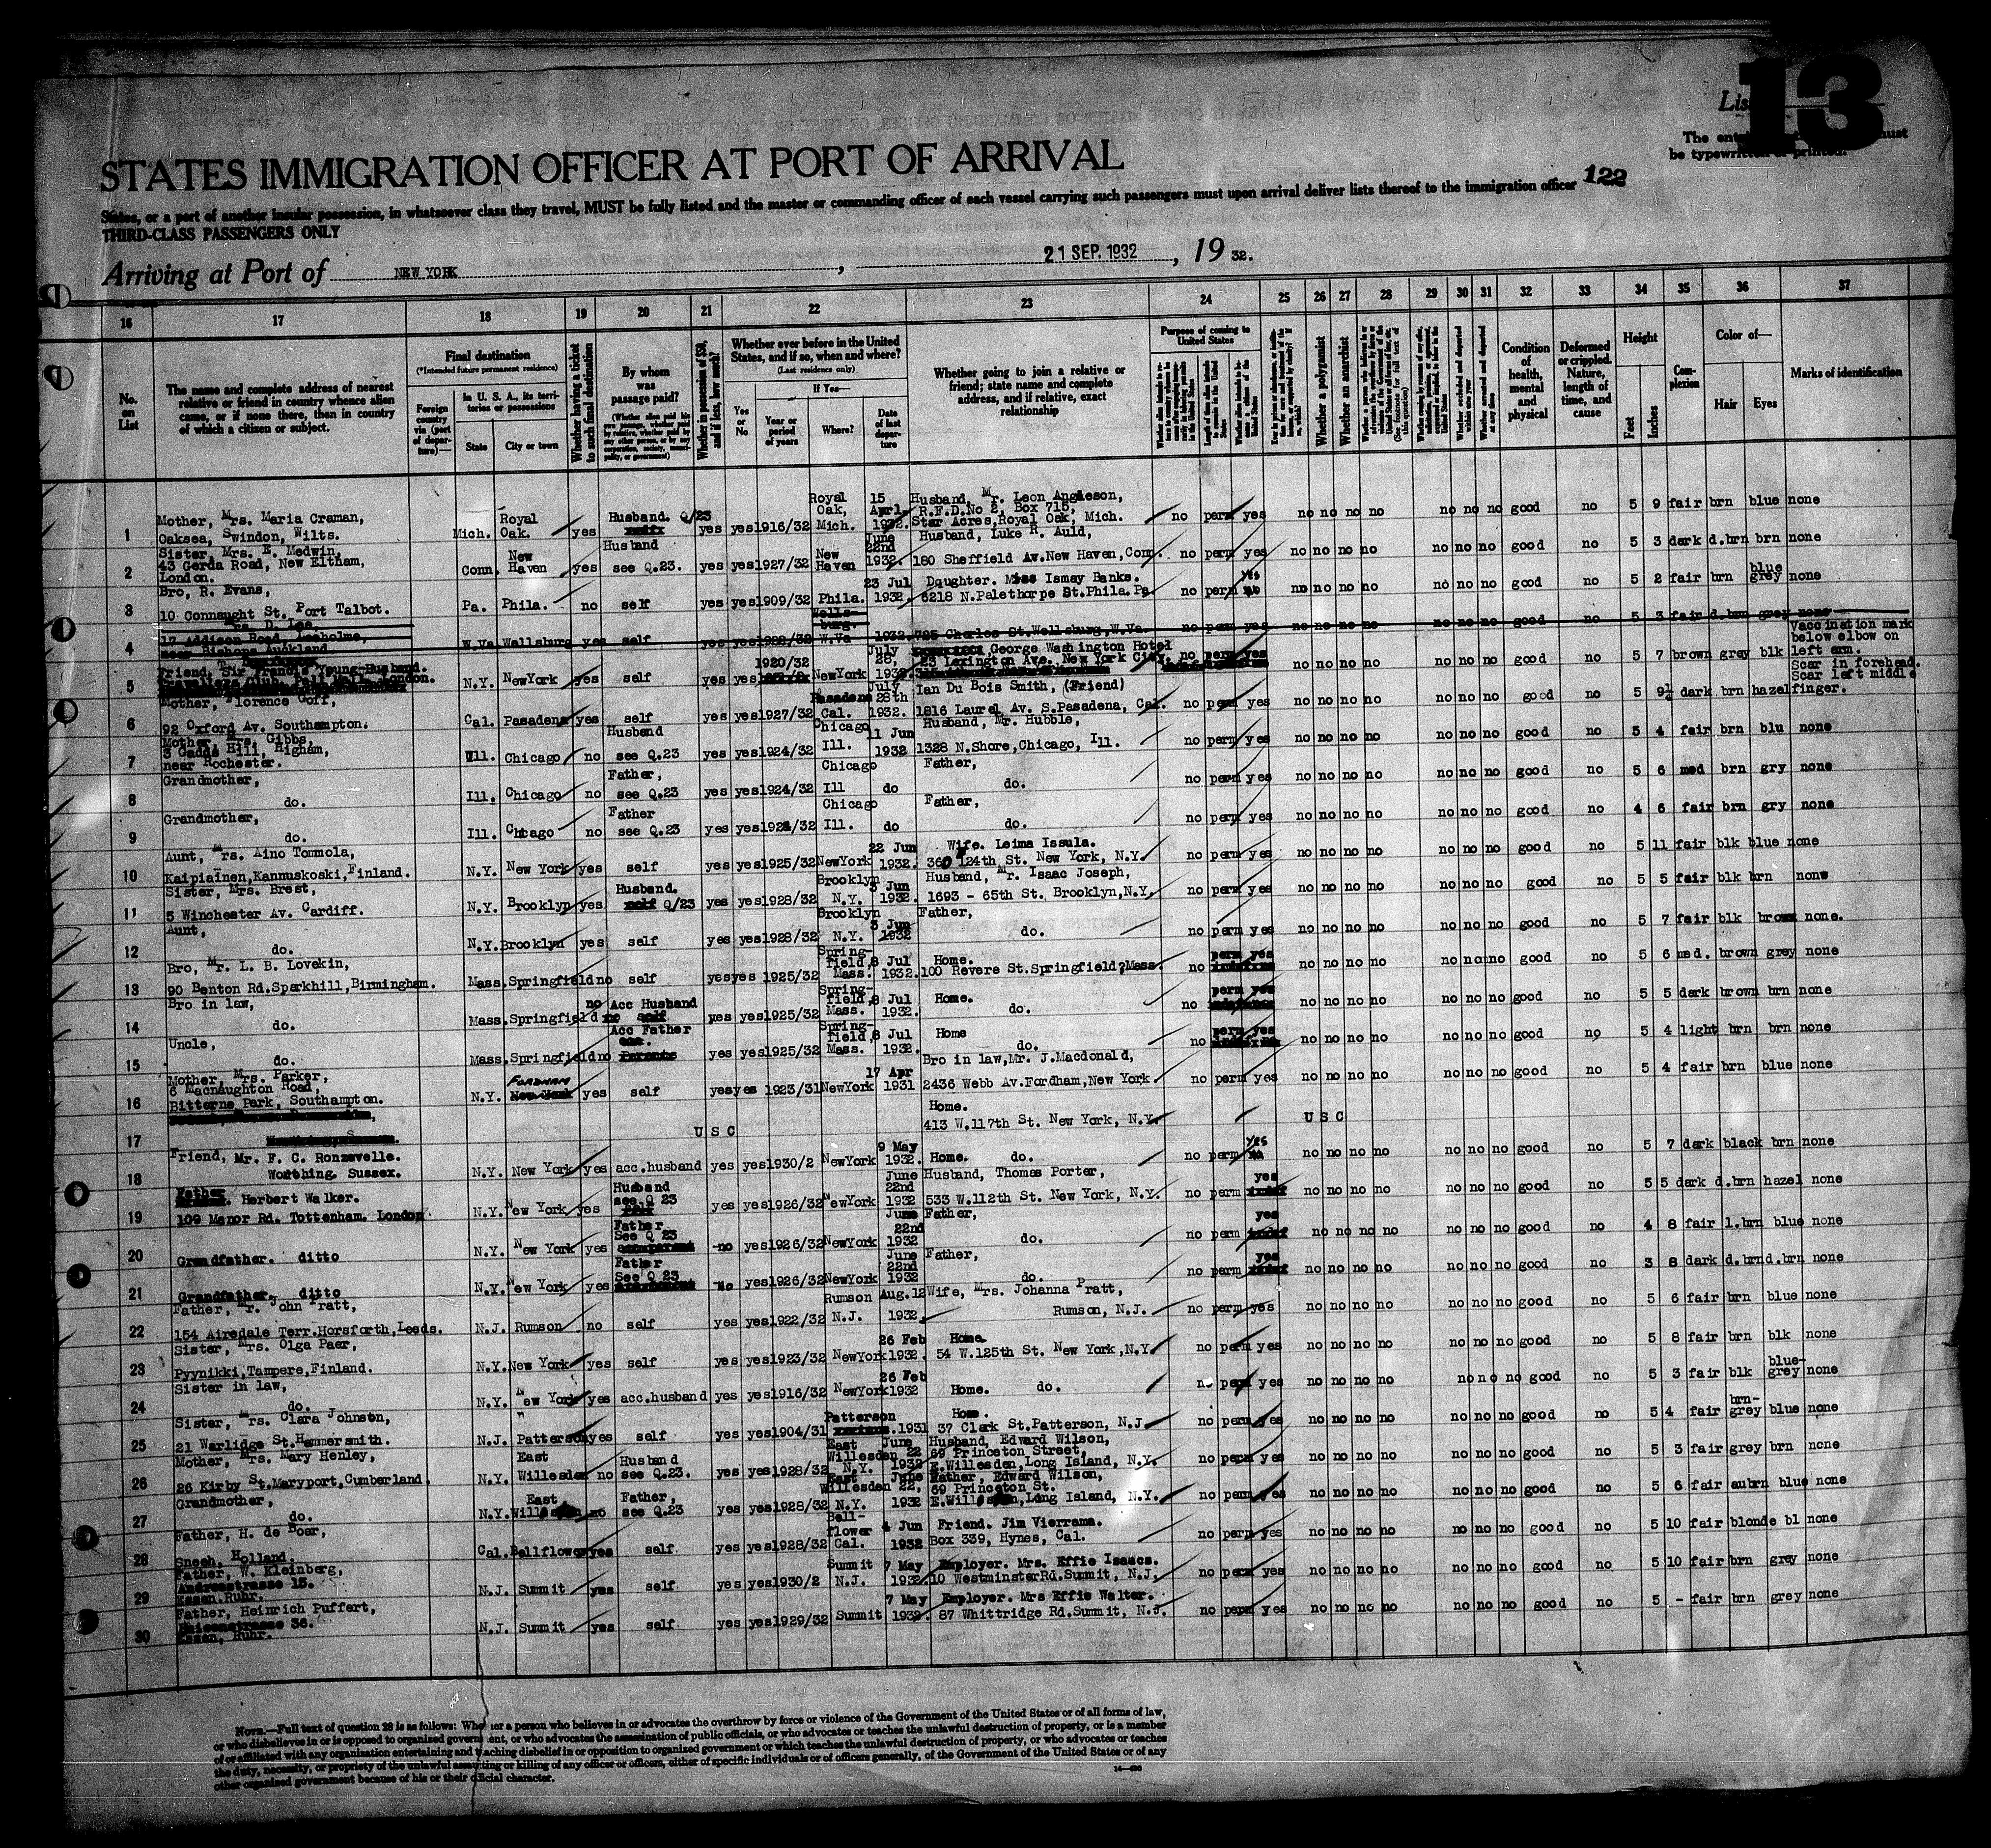 List 13
The ent must
be typewritten or printed.
STATES IMMIGRATION OFFICER AT PORT OF ARRIVAL
122
States, or a port of another insular possession, in whatsoever class they travel, MUST be fully listed and the master or commanding officer of each vessel carrying such passengers must upon arrival deliver lists thereof to the immigration officer
THIRD-CLASS PASSENGERS ONLY
Arriving at Port of NEW YORK, 21 SEP. 1932, 19 32.
16 17 18 19 20 21 22 23 24 25 26 27 28 29 30 31 32 33 34 35 36 37
No. on List
The name and complete address of nearest relative or friend in country whence alien came, or if none there, then in country of which a citizen or subject.
Final destination
(*Intended future permanent residence)
Foreign country via (port of departure)—
In U. S. A., its territories or possessions
State
City or town
Whether having a ticket to such final destination
By whom was passage paid?
Whether in possession of $50, and if less, how much?
Whether ever before in the United States, and if so, when and where?
(Last residence only)
Yes or No
If Yes—
Year or period of years
Where?
Date of last departure
Whether going to join a relative or friend; state name and complete address, and if relative, exact relationship
Purpose of coming to United States
Whether a polygamist
Whether an anarchist
Condition of health, mental and physical
Deformed or crippled. Nature, length of time, and cause
Height
Feet
Inches
Complexion
Color of—
Hair
Eyes
Marks of identification
1 Mother, Mrs. Maria Craman, Oaksea, Swindon, Wilts. Mich. Royal Oak. yes Husband. Q/23 yes yes 1916/32 Royal Oak, Mich. 15 Apr1. 1932. Husband, Mr. Leon Angleson, R.F.D.No 2, Box 715, Star Acres, Royal Oak, Mich. no perm yes no no no no no no no good no 5 9 fair brn blue none
2 Sister, Mrs. E. Medwin, 43 Gerda Road, New Eltham, London. Conn. New Haven yes Husband see Q.23. yes yes 1927/32 New Haven June 22nd 1932. Husband, Luke R. Auld, 180 Sheffield Av.New Haven, Conn. no perm yes no no no no no no no good no 5 3 dark d.brn brn none
3 Bro, R. Evans, 10 Connaught St. Port Talbot. Pa. Phila. no self yes yes 1909/32 Phila. 23 Jul 1932. Daughter. Miss Ismay Banks. 6218 N.Palethorpe St.Phila.Pa. no perm yes no no no no no no no good no 5 2 fair brn blue grey none
4 Mrs. D. Lee, 17 Addison Road, near Bishops Auckland W.Va Wellsburg yes self yes yes Wellsburg. W.Va 1932. 725 Charles St.Wellsburg, W.Va. no perm yes no no no no no no no good no 5 3 fair d.brn grey none
5 Friend, Sir Francis Young-Husband. Travellers Club, Pall Mall, London. N.Y. NewYork yes self yes yes 1920/32 NewYork July 28, 1932. George Washington Hotel 23 Lexington Ave. New York City. no perm yes no no no no no no no good no 5 7 brown grey blk Vaccination mark below elbow on left arm.
6 Mother, Florence Goff, 92 Oxford Av. Southampton. Cal. Pasadena yes self yes yes 1927/32 Pasadena Cal. July 28th 1932. Ian Du Bois Smith, (Friend) 1816 Laurel Av. S.Pasadena, Cal. no perm yes no no no no no no no good no 5 9½ dark brn hazel Scar in forehead. Scar left middle finger.
7 Mother Mrs. Gibbs, 3 Gads Hill, Higham, near Rochester. Ill. Chicago no Husband see Q.23 yes yes 1924/32 Chicago Ill. 11 Jun 1932 Husband, Mr. Hubble, 1328 N.Shore, Chicago, Ill. no perm yes no no no no no no no good no 5 4 fair brn blu none
8 Grandmother, do. Ill. Chicago no Father, see Q.23 yes yes 1924/32 Chicago Ill do Father, do. no perm yes no no no no no no no good no 5 6 med brn gry none
9 Grandmother, do. Ill. Chicago no Father see Q.23 yes yes 1924/32 Chicago Ill. do Father, do. no perm yes no no no no no no no good no 4 6 fair brn gry none
10 Aunt, Mrs. Aino Tommola, Kaipiainen, Kannuskoski, Finland. N.Y. New York yes self yes yes 1925/32 NewYork 22 Jun 1932. Wife. Leima Issula. 360 124th St. New York, N.Y. no perm yes no no no no no no no good no 5 11 fair blk blue none
11 Sister, Mrs. Brest, 5 Winchester Av. Cardiff. N.Y. Brooklyn yes Husband. Q/23 yes yes 1928/32 Brooklyn N.Y. 3 Jun 1932. Husband, Mr. Isaac Joseph, 1693 - 65th St. Brooklyn, N.Y. no perm yes no no no no no no no good no 5 5 fair blk brn nonw
12 Aunt, do. N.Y. Brooklyn yes self yes yes 1928/32 Brooklyn N.Y. 3 Jun 1932 Father, do. no perm yes no no no no no no no good no 5 7 fair blk brown none.
13 Bro, Mr. L. B. Lovekin, 90 Benton Rd.Sparkhill, Birmingham. Mass. Springfield no self yes yes 1925/32 Springfield, Mass. 8 Jul 1932. Home. 100 Revere St.Springfield, Mass. no perm yes no no no no no no no good no 5 6 med. brown grey none
14 Bro in law, do. Mass. Springfield no Acc Husband yes yes 1925/32 Springfield, Mass. 8 Jul 1932. Home. do. no perm yes no no no no no no no good no 5 5 dark brown brn none
15 Uncle, do. Mass. Springfield no Acc Father yes yes 1925/32 Springfield, Mass. 8 Jul 1932. Home do. no perm yes no no no no no no no good no 5 4 light brn brn none
16 Mother, Mrs. Parker, 6 Macnaughton Road, Bitterne Park, Southampton. N.Y. FORDHAM New York yes self yes yes 1923/31 NewYork 17 Apr 1931 Bro in law, Mr. J.Macdonald, 2436 Webb Av.Fordham, New York no perm yes no no no no no no no good no 5 4 fair brn blue none
17 U S C Home. 413 W.117th St. New York, N.Y. U S C
18 Friend, Mr. F. C. Ronzevelle. Worthing, Sussex. N.Y. New York yes acc.husband yes yes 1930/2 NewYork 9 May 1932. Home. do. no perm yes no no no no no no no good no 5 7 dark black brn none
19 Father Herbert Walker. 109 Manor Rd. Tottenham. London N.Y. New York yes Husband see Q 23 yes yes 1926/32 NewYork June 22nd 1932 Husband, Thomas Porter, 533 W.112th St. New York, N.Y. no perm yes no no no no no no no good no 5 5 dark d.brn hazel none
20 Grandfather. ditto N.Y. New York yes Father See Q 23 no yes 1926/32 NewYork June 22nd 1932 Father, do. no perm yes no no no no no no no good no 4 8 fair l.brn blue none
21 Grandfather. ditto N.Y. New York yes Father See Q 23 No yes 1926/32 NewYork June 22nd 1932 Father, do. no perm yes no no no no no no no good no 3 8 dark d.brn d.brn none
22 Father, Mr. John Pratt, 154 Airedale Terr.Horsforth, Leeds. N.J. Rumson no self yes yes 1922/32 Rumson N.J. Aug.12 1932. Wife, Mrs. Johanna Pratt, Rumson, N.J. no perm yes no no no no no no no good no 5 6 fair brn blue none
23 Sister, Mrs. Olga Paer, Pyynikki, Tampere, Finland. N.Y. New York yes self yes yes 1923/32 NewYork 26 Feb 1932. Home. 54 W.125th St. New York, N.Y. no perm yes no no no no no no no good no 5 8 fair brn blk none
24 Sister in law, do. N.Y. New York yes acc.husband yes yes 1916/32 NewYork 26 Feb 1932 Home. do. no perm yes no no no no no no no good no 5 3 fair blk blue-grey none
25 Sister, Mrs. Clara Johnson, 21 Warlidge St.Hammersmith. N.J. Patterson yes self yes yes 1904/31 Patterson 1931 Home. 37 Clark St.Patterson, N.J. no perm yes no no no no no no no good no 5 4 fair brn-grey blue none
26 Mother, Mrs. Mary Henley, 26 Kirby St.Maryport, Cumberland. N.Y. East Willesden no Husband see Q.23. yes yes 1928/32 East Willesden N.Y. June 22 1932 Husband, Edward Wilson, 69 Princeton Street, E.Willesden, Long Island, N.Y. no perm yes no no no no no no no good no 5 3 fair grey brn none
27 Grandmother, do. N.Y. East Willesden no Father, see Q.23 yes yes 1928/32 East Willesden N.Y. June 22, 1932 Father, Edward Wilson, 69 Princeton St. E.Willesden, Long Island, N.Y. no perm yes no no no no no no no good no 5 6 fair aubrn blue none
28 Father, H. de Boer, Sneek, Holland. Cal. Bellflower yes self yes yes 1928/32 Bellflower Cal. 4 Jun 1932 Friend. Jim Vierrama. Box 339, Hynes, Cal. no perm yes no no no no no no no good no 5 10 fair blonde bl none
29 Father, W. Kleinberg, Andreestrasse 15. Essen.Ruhr. N.J. Summit yes self yes yes 1930/2 Summit N.J. 7 May 1932. Employer. Mrs. Effie Isaacs. 10 WestminsterRd.Summit, N.J. no perm yes no no no no no no no good no 5 10 fair brn grey none
30 Father, Heinrich Puffert, 36. Essen, Ruhr. N.J. Summit yes self yes yes 1929/32 Summit 7 May 1932. Employer. Mrs Effie Walter. 87 Whittridge Rd.Summit, N.J. no perm yes no no no no no no no good no 5 - fair brn grey none
NOTE.—Full text of question 28 is as follows: Whether a person who believes in or advocates the overthrow by force or violence of the Government of the United States or of all forms of law,
or who disbelieves in or is opposed to organized government, or who advocates the assassination of public officials, or who advocates or teaches the unlawful destruction of property, or is a member
of or affiliated with any organization entertaining and teaching disbelief in or opposition to organized government or which teaches the unlawful destruction of property, or who advocates or teaches
the duty, necessity, or propriety of the unlawful assaulting or killing of any officer or officers, either of specific individuals or of officers generally, of the Government of the United States or of any
other organized government because of his or their official character.